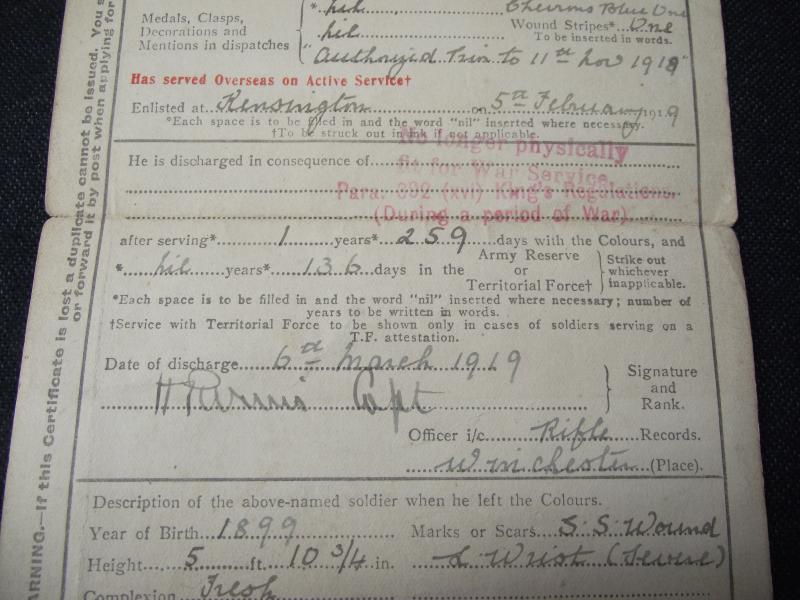 Medals, Clasps,
Decorations and
Mentions in dispatches
* nil Chevrons Blue One
nil Wound Stripes* One
To be inserted in words.
"Authorized Prior to 11th Nov 1918"
Has served Overseas on Active Service†
Enlisted at Kensington on 5th February 1919
*Each space is to be filled in and the word "nil" inserted where necessary.
†To be struck out in ink if not applicable.
He is discharged in consequence of
No longer physically
fit for War Service
Para. 392 (xvi) King's Regulations.
(During a period of War)
after serving* 1 years* 259 days with the Colours, and
* nil years* 136 days in the Army Reserve or Territorial Force† } Strike out whichever inapplicable.
*Each space is to be filled in and the word "nil" inserted where necessary; number of
years to be written in words.
†Service with Territorial Force to be shown only in cases of soldiers serving on a
T.F. attestation.
Date of discharge 6th March 1919
Capt } Signature and Rank.
Officer i/c Rifle Records.
Winchester (Place).
Description of the above-named soldier when he left the Colours.
Year of Birth 1899 Marks or Scars S.S. Wound
Height 5 ft. 10 3/4 in. L Wrist (Severe)
Complexion Fresh
WARNING.—If this Certificate is lost a duplicate cannot be issued. You s
or forward it by post when applying for